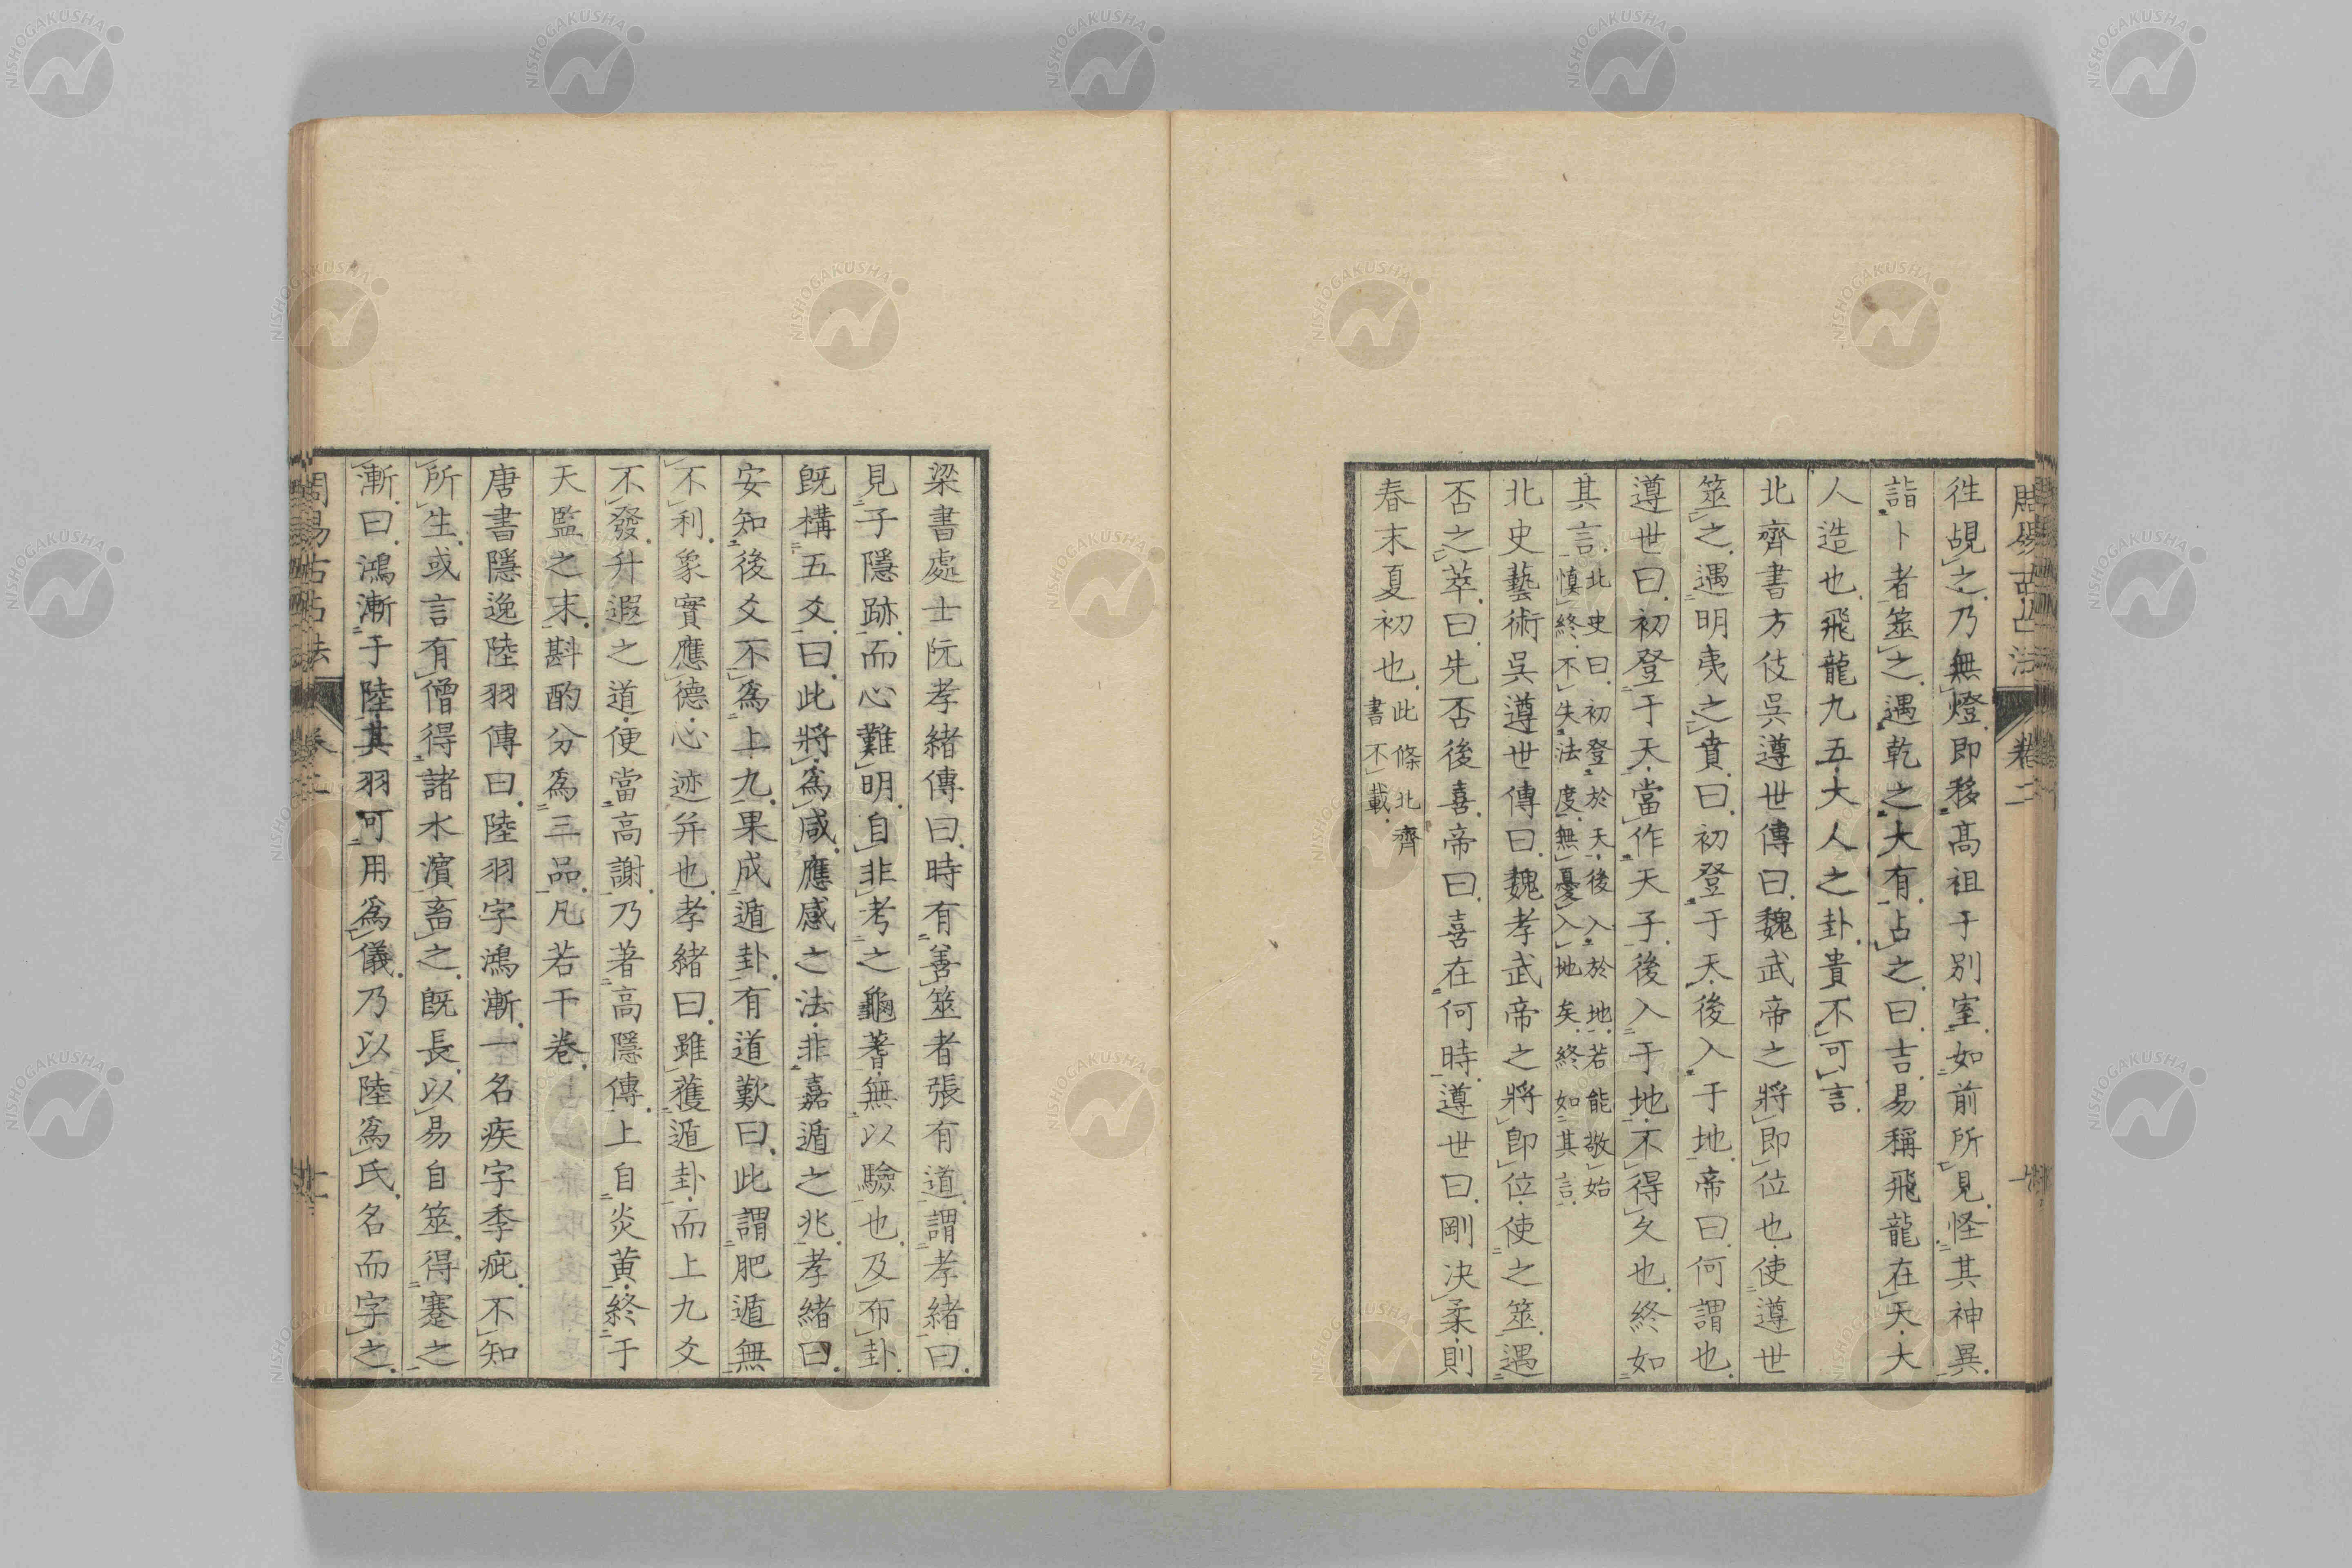 徃覘之乃無燈即移髙祖于別室如前所見怪其神異
詣卜者筮之遇乾之大有占之曰吉易稱飛龍在天大
人造也飛龍九五大人之卦貴不可言
北齊書方伎吳遵世傳曰魏武帝之將即位也使遵世
筮之遇明夷之賁曰初登于天後入于地帝曰何謂也
遵世曰初登于天當作天子後入于地不得久也終如
其言北史曰初登於天後入於地若能敬始
慎終不失法度無憂入地矣終如其言
北史藝術吳遵世傳曰魏孝武帝之將卽位使之筮遇
否之萃曰先否後喜帝曰喜在何時遵世曰剛决柔則
春末夏初也此條北齊
書不載
梁書處士阮孝緒傳曰時有善筮者張有道謂孝緒曰
見子隱跡而心難明自非考之龜蓍無以驗也及布卦
既構五爻曰此將為咸應感之法非嘉遁之兆孝緒曰
安知後爻不為上九果成遁卦有道歎曰此謂肥遁無
不利象實應德心迹并也孝緒曰雖獲遁卦而上九爻
不發升遐之道便當高謝乃著高隱傳上自炎黄終于
天監之末斟酌分為三品凡若干卷
唐書隱逸陸羽傳曰陸羽字鴻漸一名疾字季疵不知
所生或言有僧得諸水濱畜之既長以易自筮得蹇之
漸曰鴻漸于陸其羽可用為儀乃以陸為氏名而字之
NISHOGAKUSHA